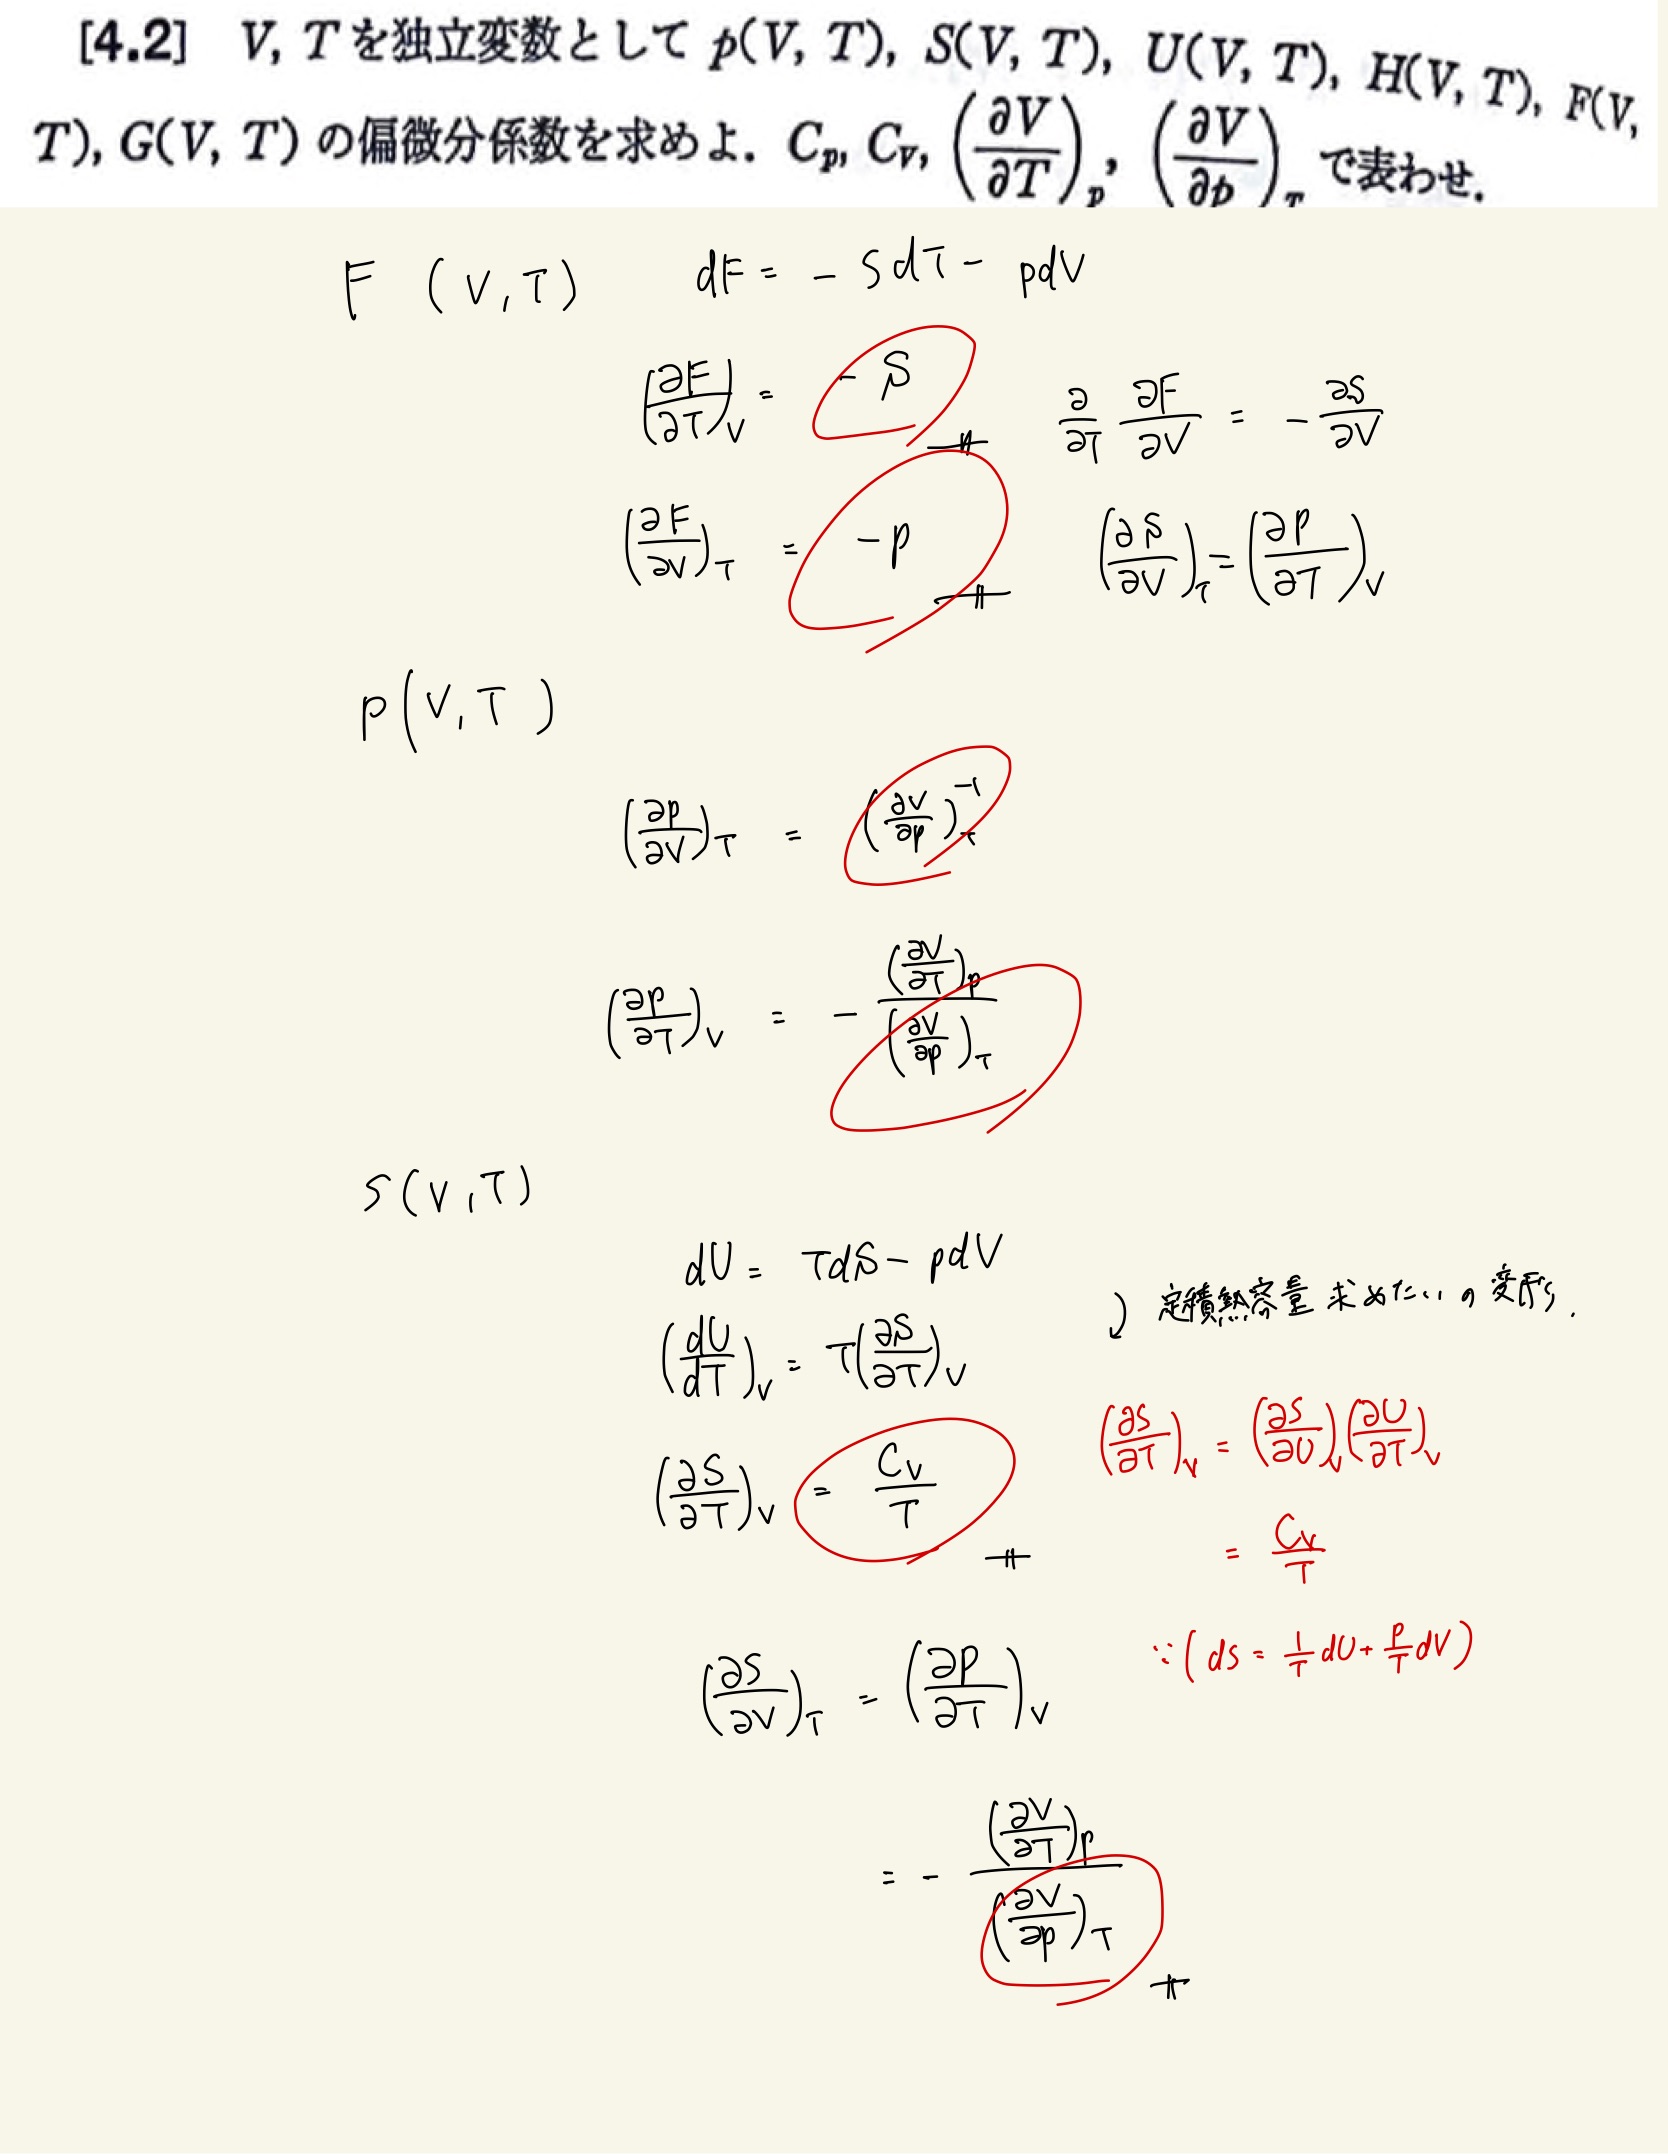 [4.2] V, T を独立変数として p(V, T), S(V, T), U(V, T), H(V, T), F(V,
T), G(V, T) の偏微分係数を求めよ. C_p, C_V, (∂V/∂T)_p, (∂V/∂p)_T で表わせ.
F (V, T) dF = - SdT - pdV
(∂F/∂T)_V = - S
∂/∂T ∂F/∂V = - ∂S/∂V
(∂F/∂V)_T = - p
(∂S/∂V)_T = (∂P/∂T)_V
P(V, T)
(∂p/∂V)_T = (∂V/∂p)_T^-1
(∂p/∂T)_V = - (∂V/∂T)_p / (∂V/∂p)_T
S(V, T)
dU = TdS - pdV
定積熱容量 求めたいの変形.
(dU/dT)_V = T(∂S/∂T)_V
(∂S/∂T)_V = (∂S/∂U)_V (∂U/∂T)_V
(∂S/∂T)_V = C_V/T
= C_V/T
∵ ( dS = 1/T dU + P/T dV )
(∂S/∂V)_T = (∂P/∂T)_V
= - (∂V/∂T)_p / (∂V/∂p)_T